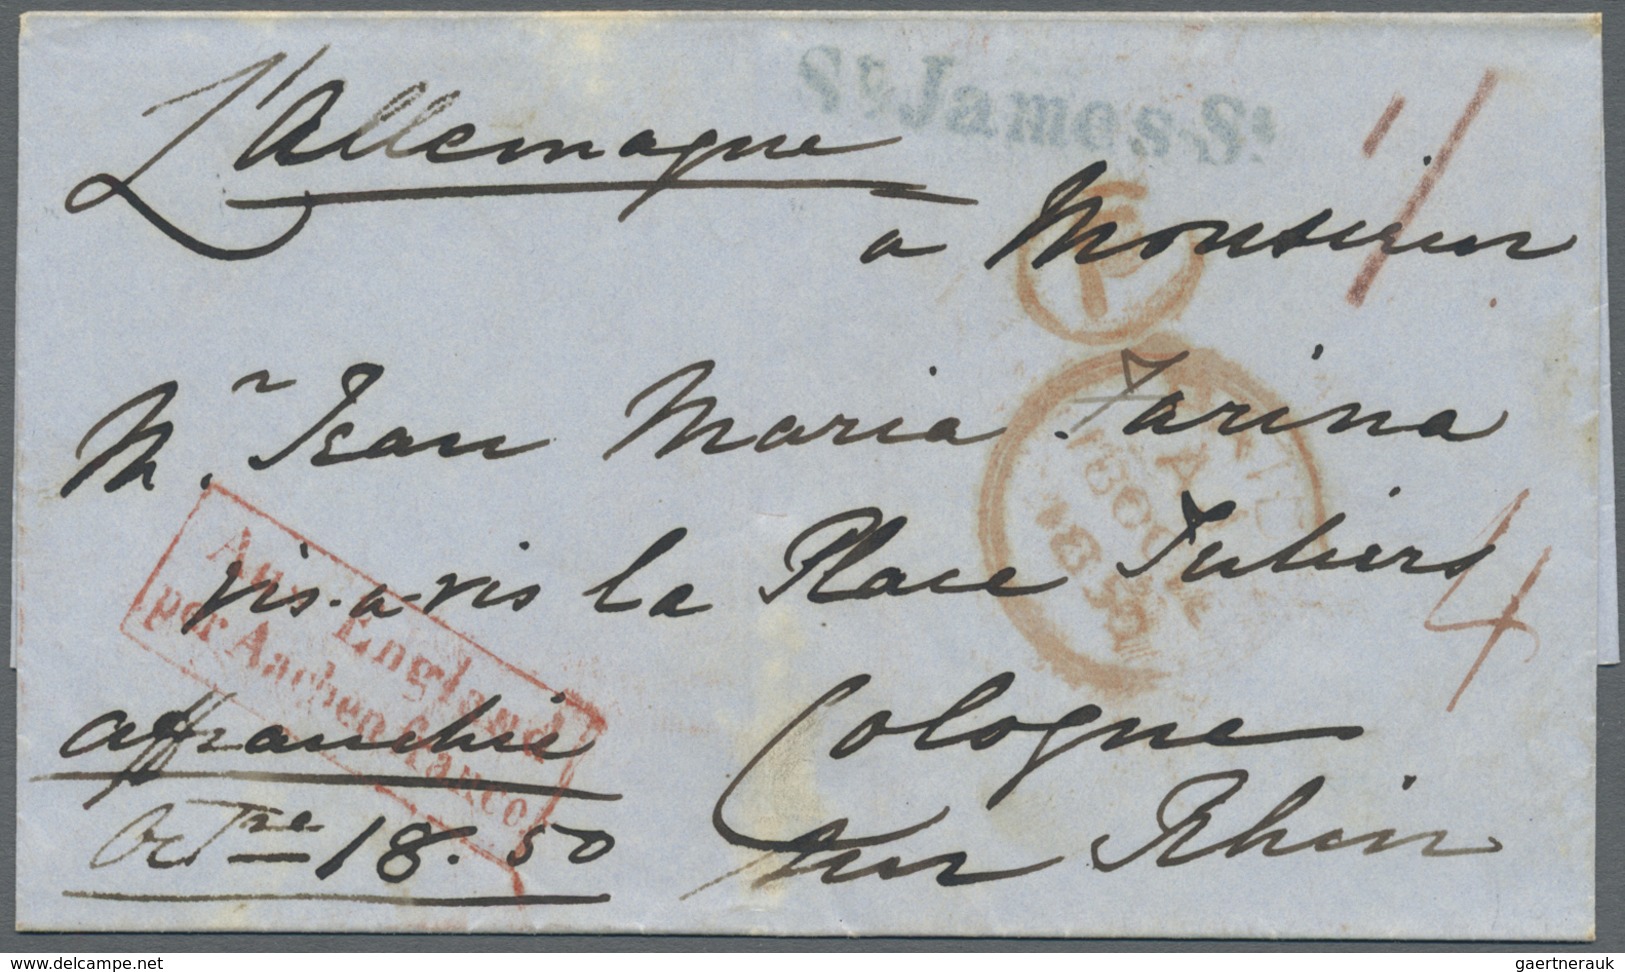 L'Allemagne
St James St
1/
à Monsieur
P
Mr. Jean Maria Farina
vis-a-vis la Place Juliers
Aus England
per Aachen franco
4
Cologne
affranchie
sur Rhin
Octre 18. 50
delcampe.net
gaertnerauk